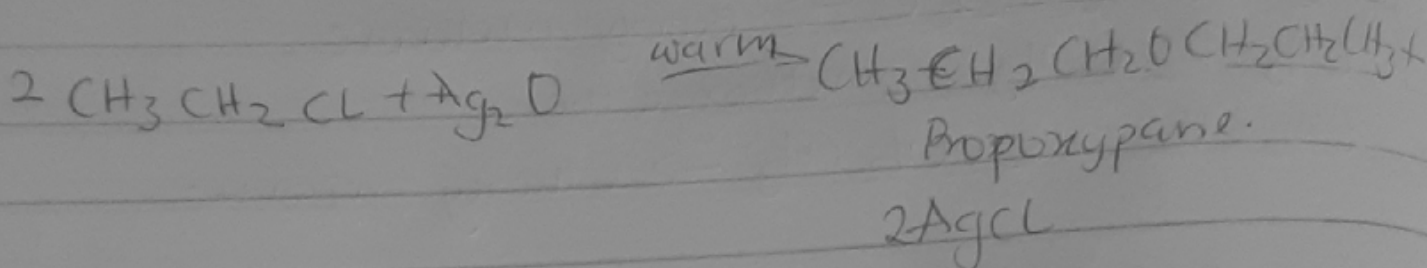 2 CH3 CH2 CL + Ag2 O warm CH3 CH2 CH2 O CH2 CH2 CH3 +
Propoxypane.
2AgCL